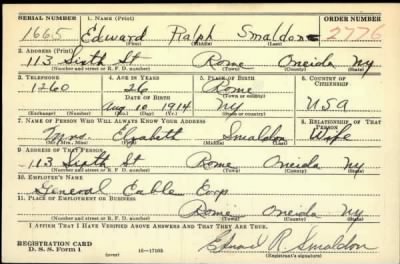 SERIAL NUMBER 1. NAME (Print) ORDER NUMBER
1665 Edward Ralph Smaldon 2776
(First) (Middle) (Last)
2. ADDRESS (Print)
113 Sixth St Rome Oneida Ny
(Number and street or R. F. D. number) (Town) (County) (State)
3. TELEPHONE 4. AGE IN YEARS 5. PLACE OF BIRTH 6. COUNTRY OF CITIZENSHIP
1260 26 Rome
DATE OF BIRTH (Town or county)
Aug 10 1914 Ny USA
(Exchange) (Number) (Mo.) (Day) (Yr.) (State or country)
7. NAME OF PERSON WHO WILL ALWAYS KNOW YOUR ADDRESS 8. RELATIONSHIP OF THAT PERSON
Mrs. Elizabeth Smaldon Wife
(Mr., Mrs., Miss) (First) (Middle) (Last)
9. ADDRESS OF THAT PERSON
113 Sixth St Rome Oneida Ny
(Number and street or R. F. D. number) (Town) (County) (State)
10. EMPLOYER'S NAME
General Cable Corp
11. PLACE OF EMPLOYMENT OR BUSINESS
Rome Oneida Ny
(Number and street or R. F. D. number) (Town) (County) (State)
I AFFIRM THAT I HAVE VERIFIED ABOVE ANSWERS AND THAT THEY ARE TRUE.
REGISTRATION CARD
D. S. S. Form 1 (over) 16—17105 Edward R. Smaldon
(Registrant's signature)